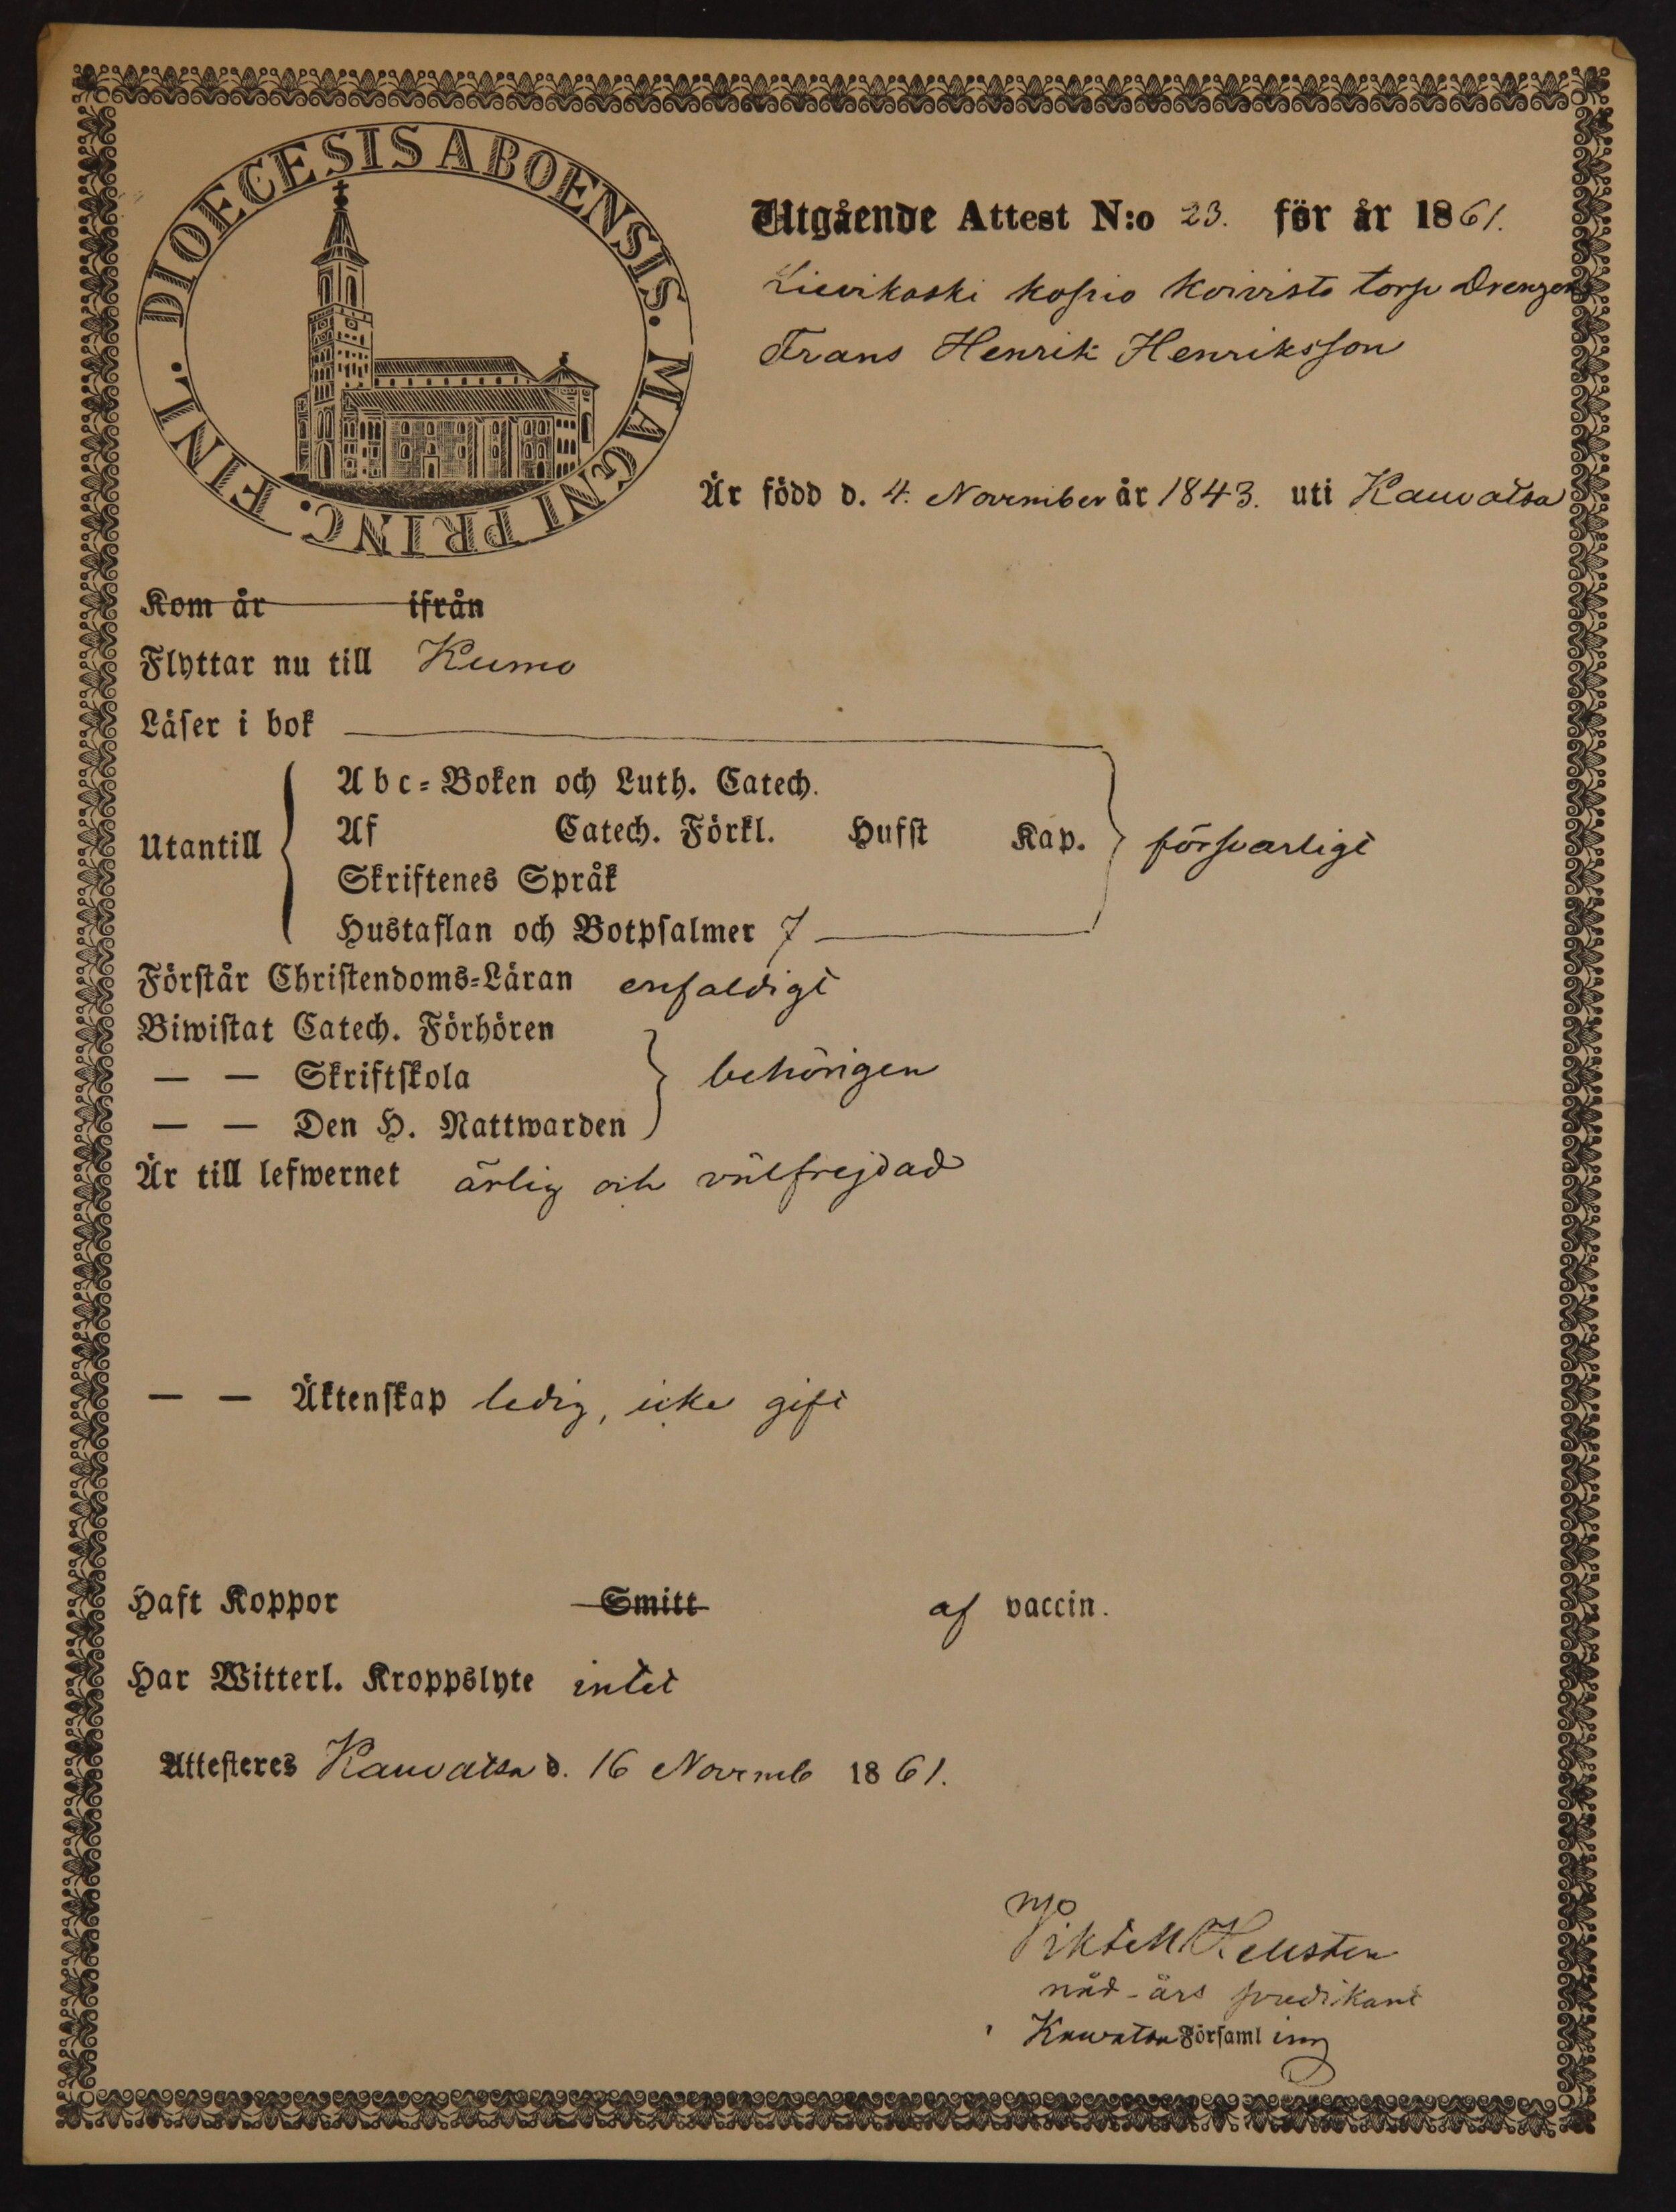 DIOECESIS ABOENSIS. MAGNI PRINC. FINL.
Utgående Attest N:o 23. för år 1861.
koivisto torp Drengen
Frans Henrik Henriksson
Är född d. 4. November år 1843. uti Kauvatsa
Kom år ifrån
Flyttar nu till Kumo
Läser i bok
Utantill
Abc-Boken och Luth. Catech.
Af Catech. Förkl. Hufst Kap. försvarligt
Skriftenes Språk
Hustaflan och Botpsalmer 7
Förstår Christendoms-Läran enfaldigt
Biwistat Catech. Förhören
— — Skriftskola behörigen
— — Den H. Nattwarden
Är till lefwernet ärlig och välfrejdad
— — Äktenskap ledig, icke gift
Haft Koppor Smitt af vaccin.
Har Witterl. Kroppslyte intet
Attesteres Kauvatsa d. 16 Novemb 1861.
nåd-års predikant
Kauvatsa Församl ing